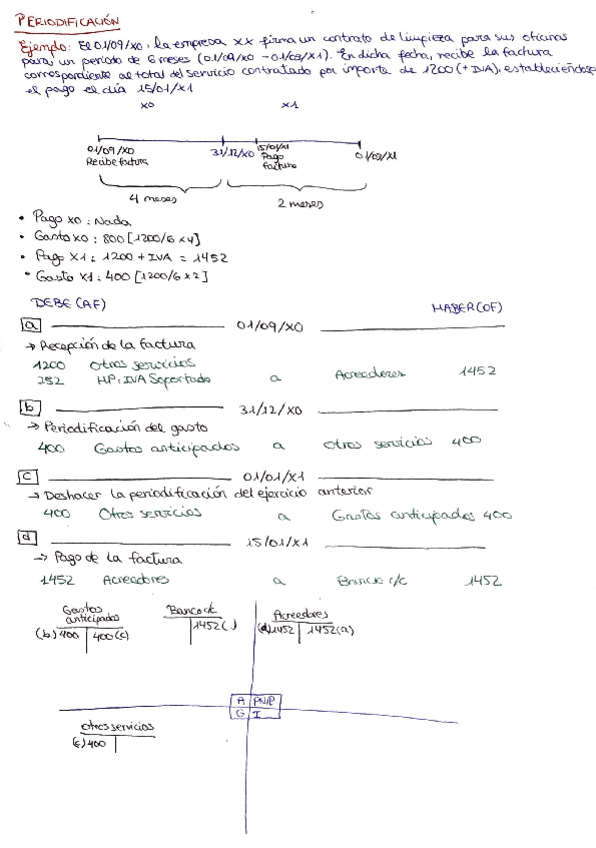 PERIODIFICACIÓN
Ejemplo: El 01/09/X0, la empresa XX firma un contrato de limpieza para sus oficinas
para un periodo de 6 meses (01/09/X0 - 01/03/X1). En dicha fecha, recibe la factura
correspondiente al total del servicio contratado por importe de 1200 (+ IVA), estableciéndose
el pago el día 15/01/X1
X0 X1
01/09/X0 31/12/X0 15/01/X1 01/03/X1
Recibe factura Pago factura
4 meses 2 meses
• Pago X0: Nada
• Gasto X0: 800 [1200/6 x 4]
• Pago X1: 1200 + IVA = 1452
• Gasto X1: 400 [1200/6 x 2]
DEBE (AF) HABER (OF)
a 01/09/X0
→ Recepción de la factura
1200 Otros servicios
252 HP: IVA Soportado a Acreedores 1452
b 31/12/X0
→ Periodificación del gasto
400 Gastos anticipados a Otros servicios 400
c 01/01/X1
→ Deshacer la periodificación del ejercicio anterior
400 Otros servicios a Gastos anticipados 400
d 15/01/X1
→ Pago de la factura
1452 Acreedores a Banco c/c 1452
Gastos anticipados Banco c/c Acreedores
(b) 400 400 (c) 1452 ( ) (d) 1452 1452 (a)
A PN/P
G I
Otros servicios
(c) 400